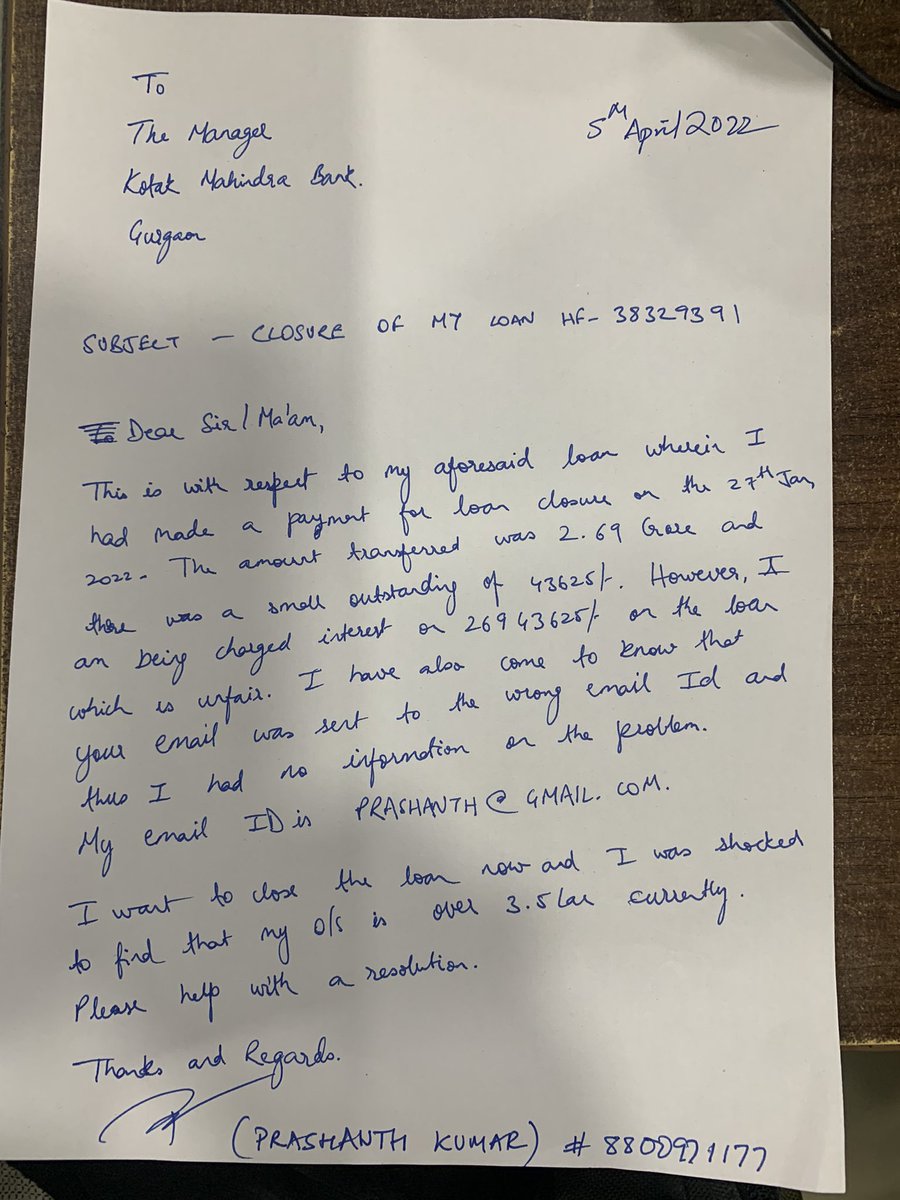 To
5th April 2022
The Manager
Kotak Mahindra Bank.
Gurgaon
SUBJECT - CLOSURE OF MY LOAN HF- 38329391
Dear Sir / Ma'am,
This is with respect to my aforesaid loan wherein I
had made a payment for loan closure on the 27th Jan,
2022. The amount transferred was 2.69 Crore and
there was a small outstanding of 43625/-. However, I
am being charged interest on 26943625/- on the loan
which is unfair. I have also come to know that
your email was sent to the wrong email Id and
thus I had no information on the problem.
My email ID is PRASHANTH@GMAIL.COM.
I want to close the loan now and I was shocked
to find that my O/S is over 3.5 lac currently.
Please help with a resolution.
Thanks and Regards.
(PRASHANTH KUMAR) # 8800971177